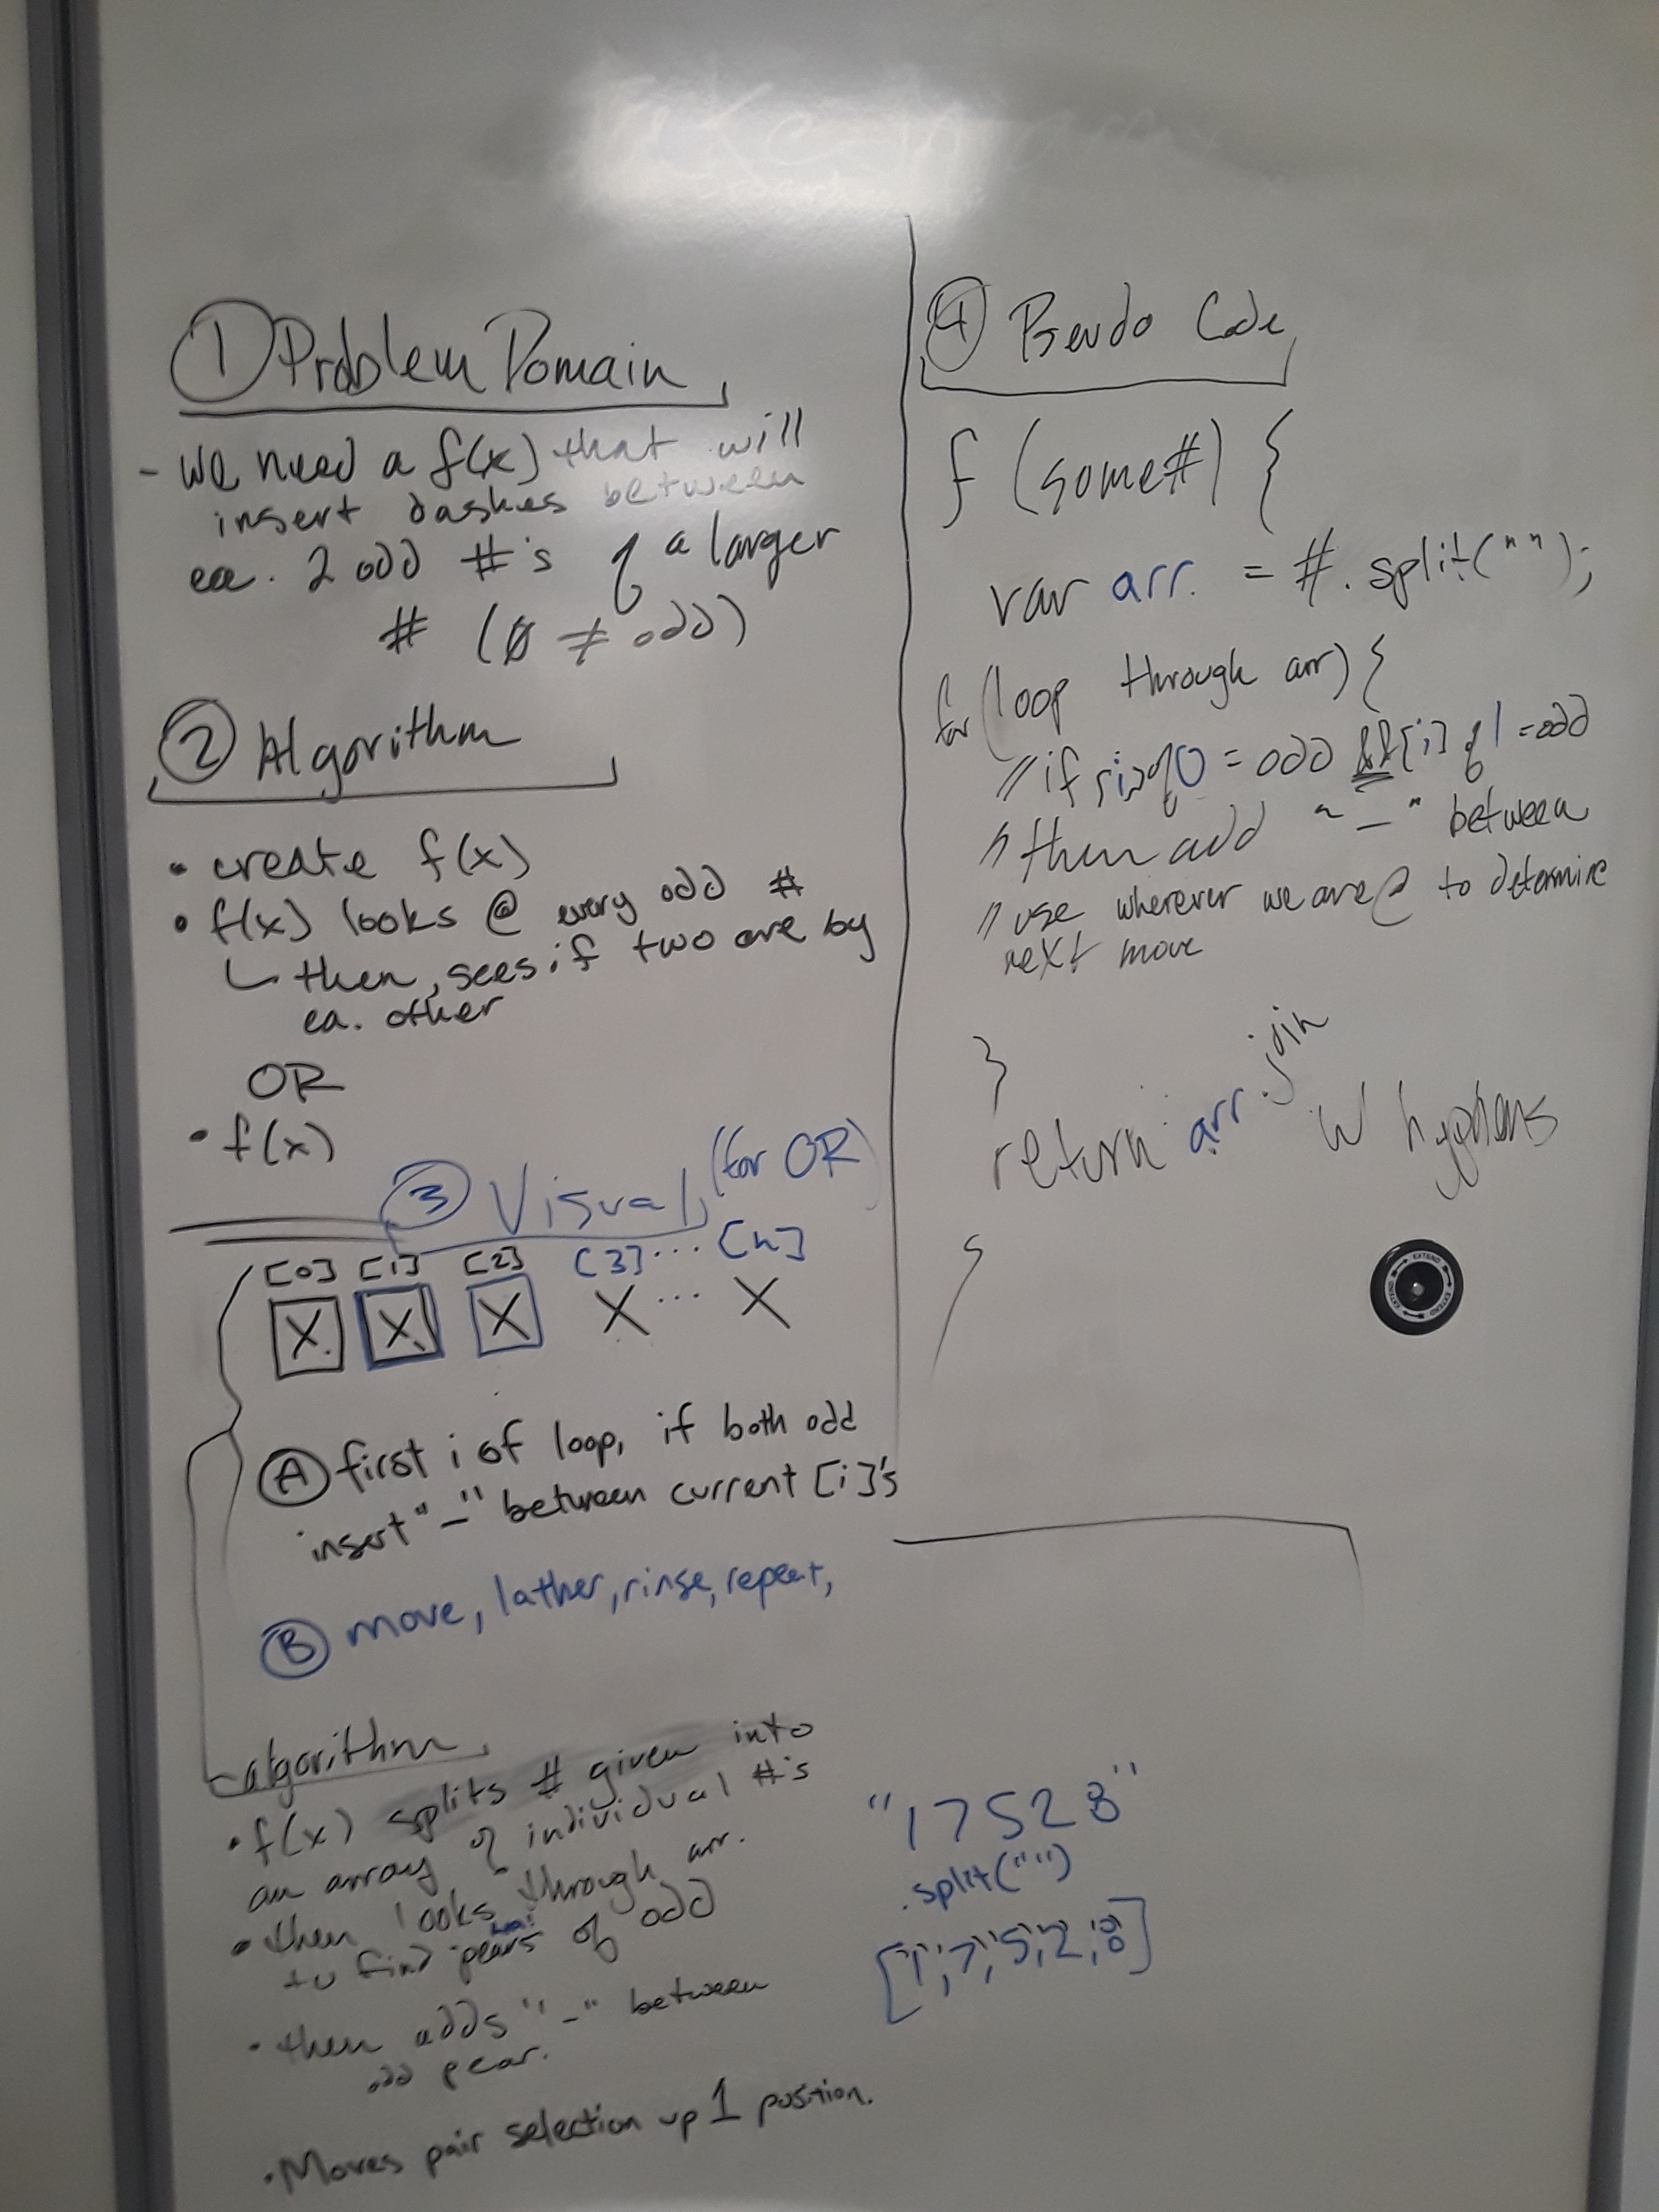 ① Problem Domain
- We need a f(x) that will
insert dashes between
ea. 2 odd #'s of a larger
# (Ø ≠ odd)
② Algorithm
• create f(x)
• f(x) looks @ every odd #
↳ then, sees if two are by
ea. other
OR
• f(x)
③ Visual (for OR)
[0] [1] [2] [3] ... [n]
X X X X ... X
Ⓐ first i of loop, if both odd
insert "-" between current [i]'s
Ⓑ move, lather, rinse, repeat,
algorithm
• f(x) splits # given into
an array of individual #'s
• then looks through arr.
to find pears of odd
• then adds "-" between
odd pear.
• Moves pair selection up 1 position.
④ Pseudo Code
f (some#) {
var arr. = #. split("");
for (loop through arr) {
// if [i] of 0 = odd && [i] of 1 = odd
// then add "-" between
// use wherever we are @ to determine
next move
}
return arr.join w hyphens
EXTEND EXTEND EXTEND
"17528"
.split("")
["1","7","5","2","8"]